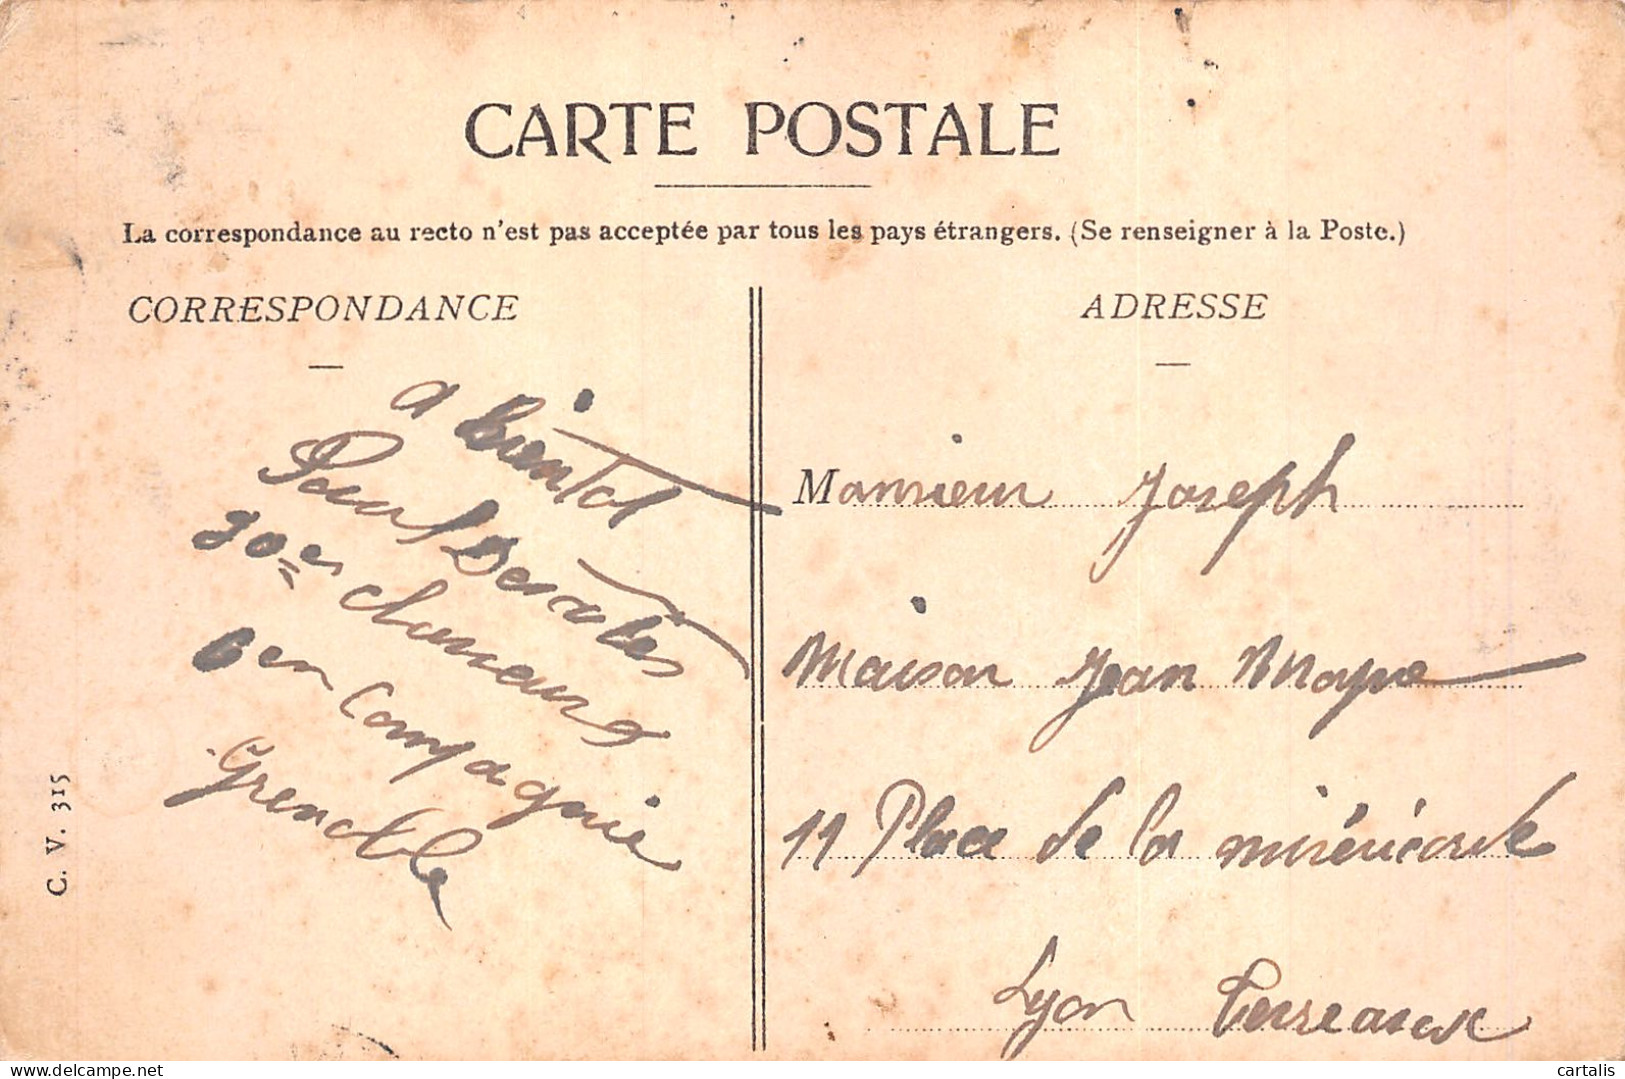 CARTE POSTALE
La correspondance au recto n'est pas acceptée par tous les pays étrangers. (Se renseigner à la Poste.)
CORRESPONDANCE
a bientot
Paul
30es chasseurs
6em Compagnie
Grenoble
C. V. 315
ADRESSE
Monsieur Joseph
Maison Jean
11 Place de la miséricorde
Lyon Terreaux
cartalis
delcampe.net